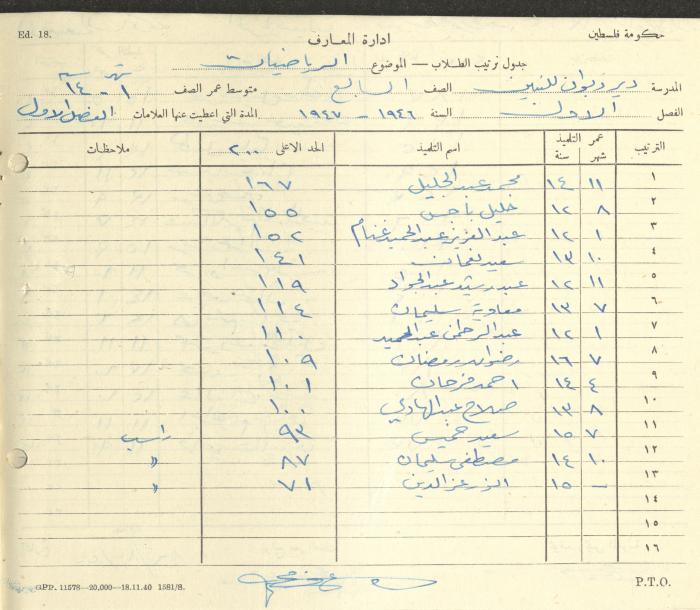 Ed. 18.
حكومة فلسطين
ادارة المعارف
جدول ترتيب الطلاب — الموضوع الرياضيات
المدرسة دير ديوان للبنين الصف السابع متوسط عمر الصف شهر ١ - سنة ١٤
الفصل الاول السنة ١٩٤٦ - ١٩٤٧ المدة التي اعطيت عنها العلامات الفصل الاول
الترتيب عمر التلميذ شهر سنة اسم التلميذ الحد الاعلى ٢٠٠ ملاحظات
١ ١١ ١٤ محمد عبد الجليل ١٦٧
٢ ٨ ١٢ خليل ناجي ١٥٥
٣ ١ ١٢ عبد العزيز عبد الحميد غنام ١٥٢
٤ ١٠ ١٣ سعيد نعمان ١٤١
٥ ١١ ١٢ عبد رشيد عبد الجواد ١١٩
٦ ٧ ١٣ معاوية سليمان ١١٤
٧ ١ ١٢ عبد الرحمن عبد الحميد ١١٠
٨ ٧ ١٦ رضوان رمضان ١٠٩
٩ ٤ ١٤ احمد فرحان ١٠١
١٠ ٨ ١٣ صلاح عبد الهادي ١٠٠
١١ ٧ ١٥ سعيد خميس ٩٣ راسب
١٢ ١٠ ١٤ مصطفى سليمان ٨٧ "
١٣ — ١٥ عز الدين ٧١ "
١٤
١٥
١٦
GPP. 11578—20,000—18.11.40 1581/8.
P.T.O.